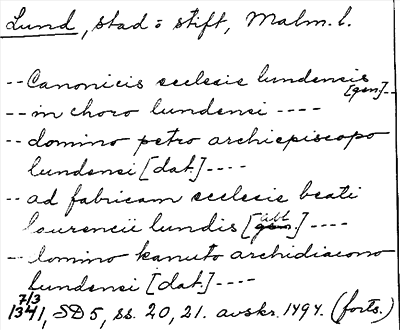 Lund, stad o stift, Malm. l.
-- Canonicis ecclesie lundensis [gen]--
-- in choro lundensi ----
-- domino petro archiepiscopo
lundensi [dat.] ----
-- ad fabricam ecclesie beati
laurencii lundis [abl.] ----
-- domino kanuto archidiacono
lundensi [dat.] ----
7/3
1341, SD 5, ss. 20, 21. avskr. 1494. (forts.)